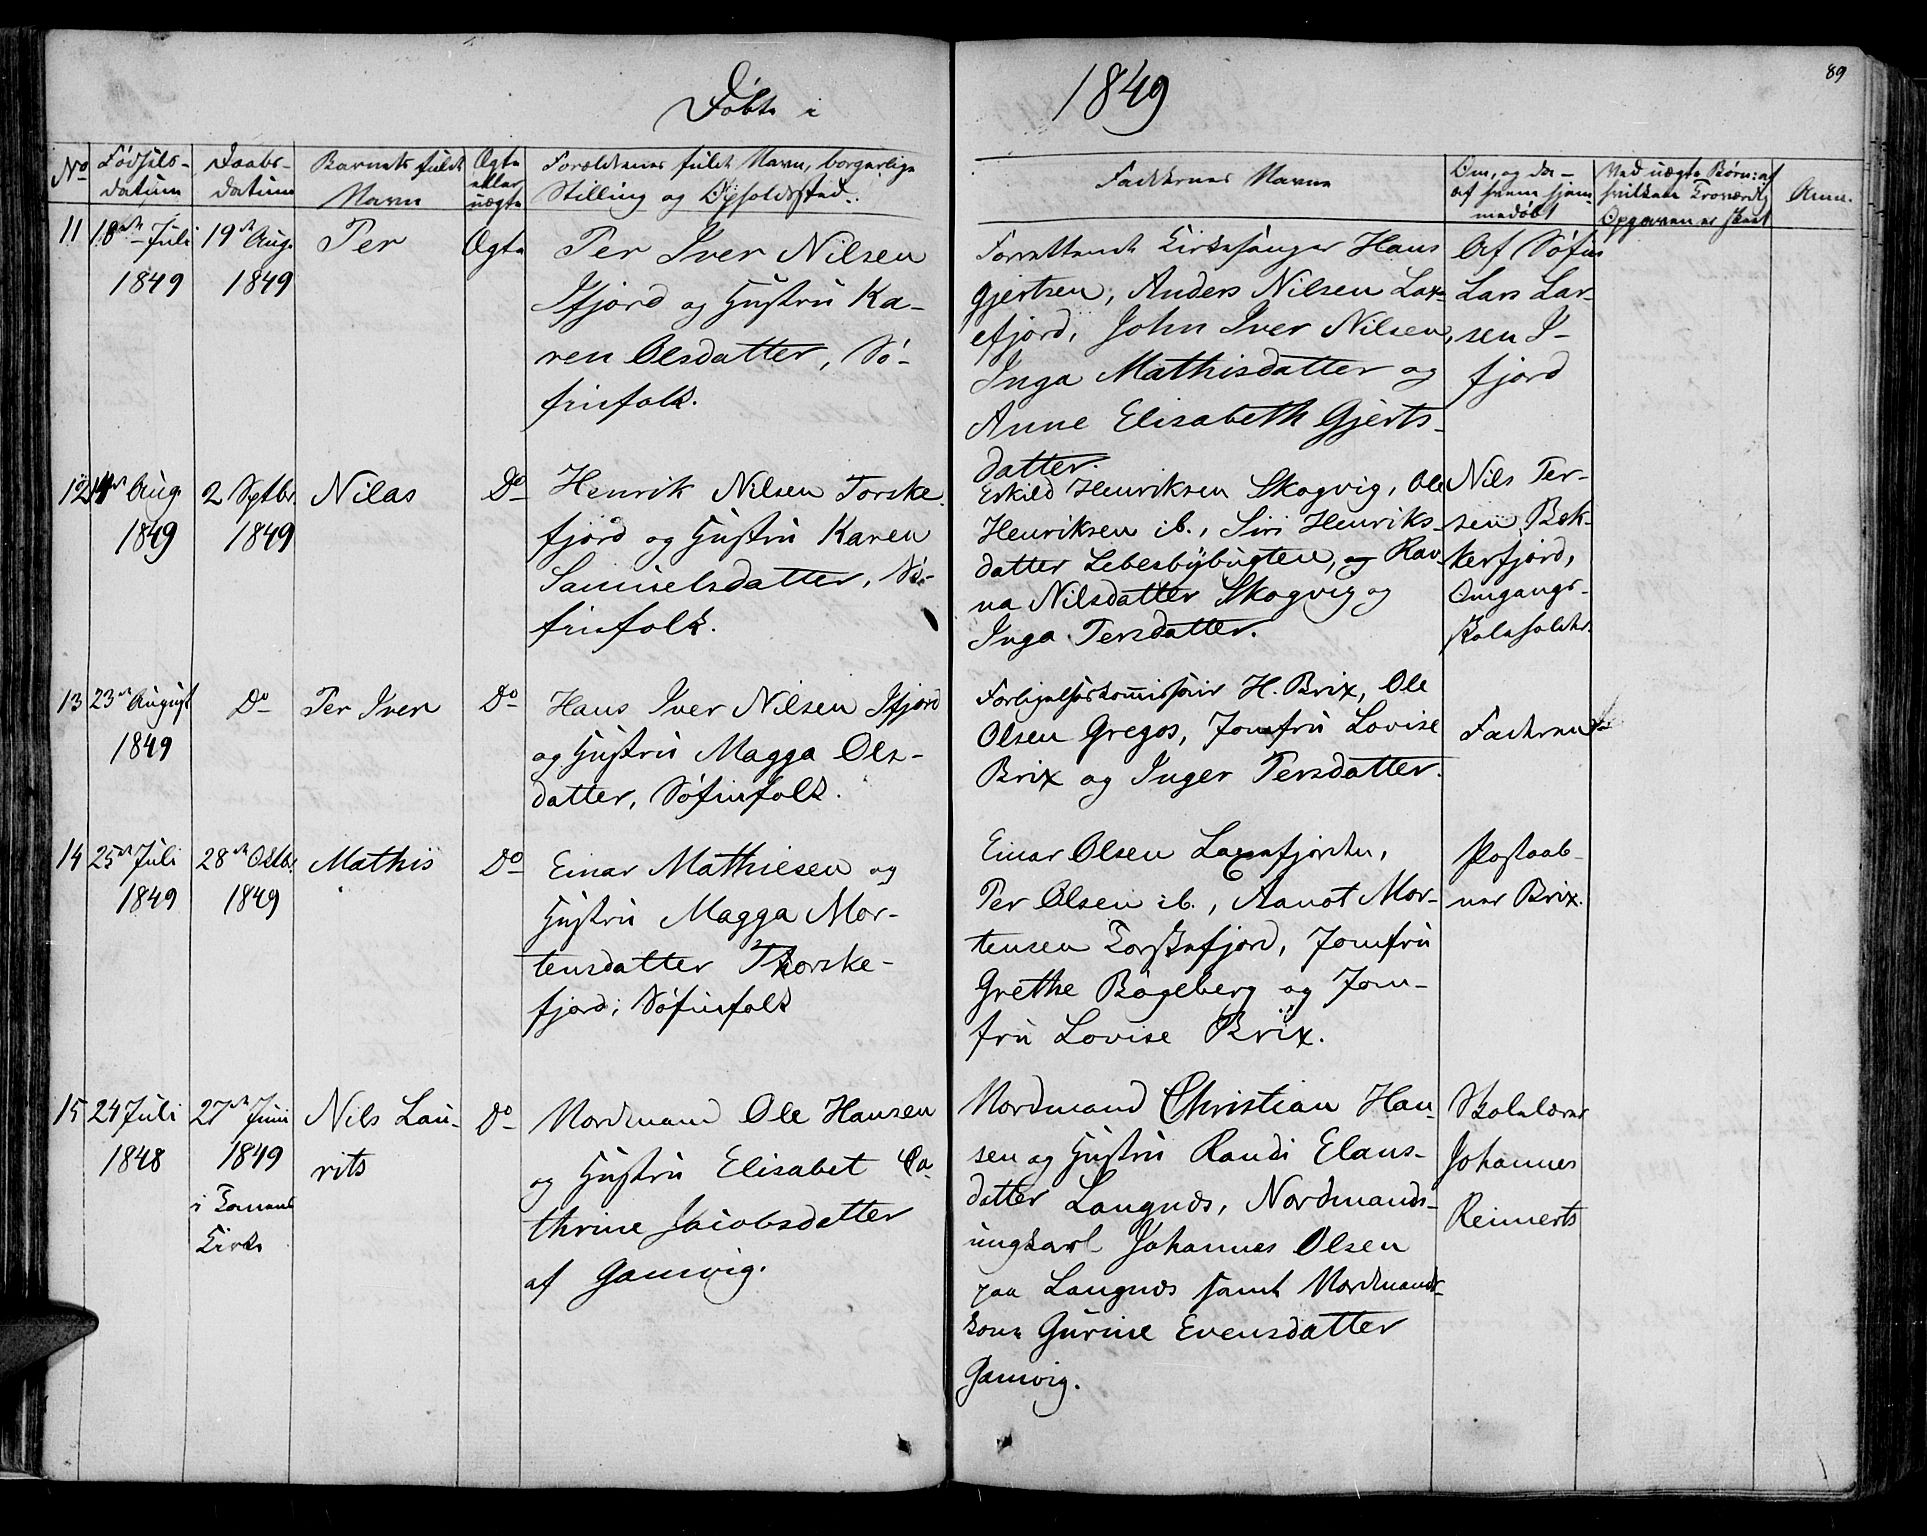 Døbte i
1849
89
No
Fødsels-
datum
Daabs-
datum
Barnets fulde
Navn
Ægte
eller
uægte
Forældrenes fulde Navn, borgerlige
Stilling og Opholdssted.
Faddernes Navne
Om, og da
af hvem hjem-
medøbt
Ved uægte Børn: af
hvilken Troværdig
Opgaven er skeet
Anm.
11
18de Juli
1849
19de Aug.
1849
Per
Ægte
Per Iver Nilsen
Ifjord og Hustru Ka-
ren Olsdatter, Sø-
finfolk.
Forrettende Kirkesanger Hans
Gjertsen, Anders Nilsen Lax-
efjord, John Iver Nilsen,
Inga Mathisdatter og
Anne Elisabeth Gjerts-
datter.
Af Søfin
Lars Lar-
sen I-
fjord
12
Aug.
1849
2 Sptbr.
1849
Nilas
Do
Henrik Nilsen Torske-
fjord og Hustru Karen
Samuelsdatter, Sø-
finfolk.
Eskild Henriksen Skogvig, Ole
Henriksen ib., Siri Henriks-
datter Lebesbybugten, og Rav-
na Nilsdatter Skogvig og
Inga Persdatter.
Nils Per-
sen Bek-
kerfjord,
Omgangs-
skoleholder.
13
23de August
1849
Do
Per Iver
Do
Hans Iver Nilsen Ifjord
og Hustru Magga Ols-
datter, Søfinfolk.
Forligelseskommissair H. Brix, Ole
Olsen Gregos, Jomfru Lovise
Brix og Inger Persdatter.
Faderen
14
25de Juli
1849
28de Octbr.
1849
Mathis
Do
Einar Mathiesen og
Hustru Magga Mor-
tensdatter Thorske-
fjord; Søfinfolk
Einar Olsen Laxefjorden,
Per Olsen ib., Aanot Mor-
tensen Torskefjord, Jomfru
Grethe Bøgeberg og Jom-
fru Lovise Brix.
Postaab-
ner Brix.
15
24 Juli
1848
27de Juni
1849
i Tanens
Kirke
Nils Lau-
rits
Do
Nordmand Ole Hansen
og Hustru Elisabet Ca-
thrine Jacobsdatter
af Gamvig.
Nordmand Christian Han-
sen og Hustru Randi Elans-
datter Langnæs, Nordmands-
ungkarl Johannes Olsen
paa Langnæs samt Nordmands-
kone Gurine Evensdatter
Gamvig.
Skolelærer
Johannes
Reinerts